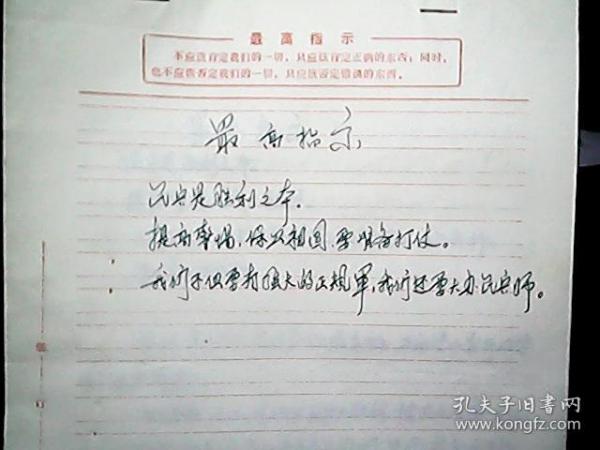 最高指示
不应该肯定我们的一切,只应该肯定正确的东西;同时,
也不应该否定我们的一切,只应该否定错误的东西。
最高指示
民兵是胜利之本.
提高警惕,保卫祖国,要准备打仗。
我们不但要有强大的正规军,我们还要大办民兵师。
孔夫子旧书网
www.kongfz.com